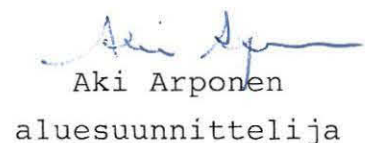 Aki Arponen
aluesuunnittelija